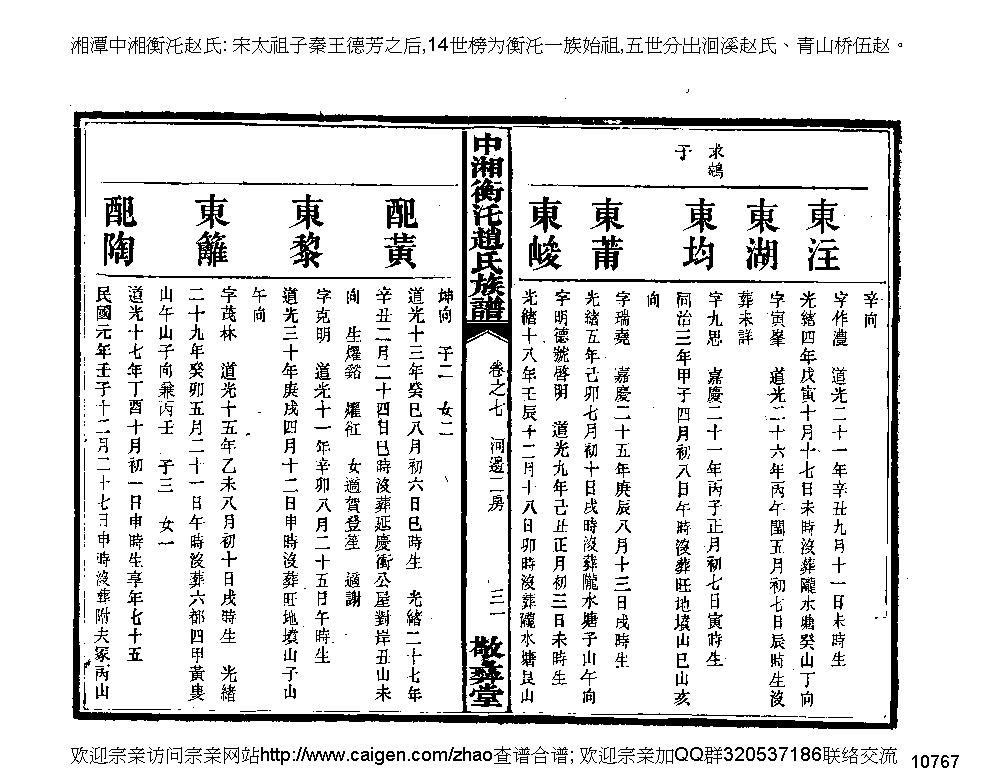 湘潭中湘衡沱赵氏: 宋太祖子秦王德芳之后,14世榜为衡沱一族始祖,五世分出洄溪赵氏、青山桥伍赵。
辛向
東注
字作澧 道光二十一年辛丑九月十一日未時生
光緒四年戊寅十月十七日未時沒葬隴水塘癸山丁向
東湖
字寅峯 道光二十六年丙午閏五月初七日辰時生沒
葬未詳
求鵷
于
東均
字九思 嘉慶二十一年丙子正月初七日寅時生
同治三年甲子四月初八日午時沒葬旺地墳山巳山亥
向
東莆
字瑞堯 嘉慶二十五年庚辰八月十三日戌時生
光緒五年己卯七月初十日戌時沒葬隴水塘子山午向
東峻
字明德號啓明 道光九年己丑正月初三日未時生
光緒十八年壬辰十二月十八日卯時沒葬隴水塘艮山
中湘衡沱趙氏族譜
卷之七 河邊二房
三一
敬彝堂
坤向 子二 女二
配黃
道光十三年癸巳八月初六日巳時生 光緒二十七年
辛丑二月二十四日巳時沒葬延慶衝公屋對岸丑山未
向 生燿谿 燿征 女適賀登笙 適謝
東黎
字克明 道光十一年辛卯八月二十五日午時生
道光三十年庚戌四月十二日申時沒葬旺地墳山子山
午向
東籬
字茂林 道光十五年乙未八月初十日戌時生 光緒
二十九年癸卯五月二十一日午時沒葬六都四甲黃嵬
山午山子向兼丙壬 子三 女一
配陶
道光十七年丁酉十月初一日申時生享年七十五
民國元年壬子十二月二十七日申時沒葬附夫冢丙山
欢迎宗亲访问宗亲网站http://www.caigen.com/zhao查谱合谱; 欢迎宗亲加QQ群320537186联络交流
10767